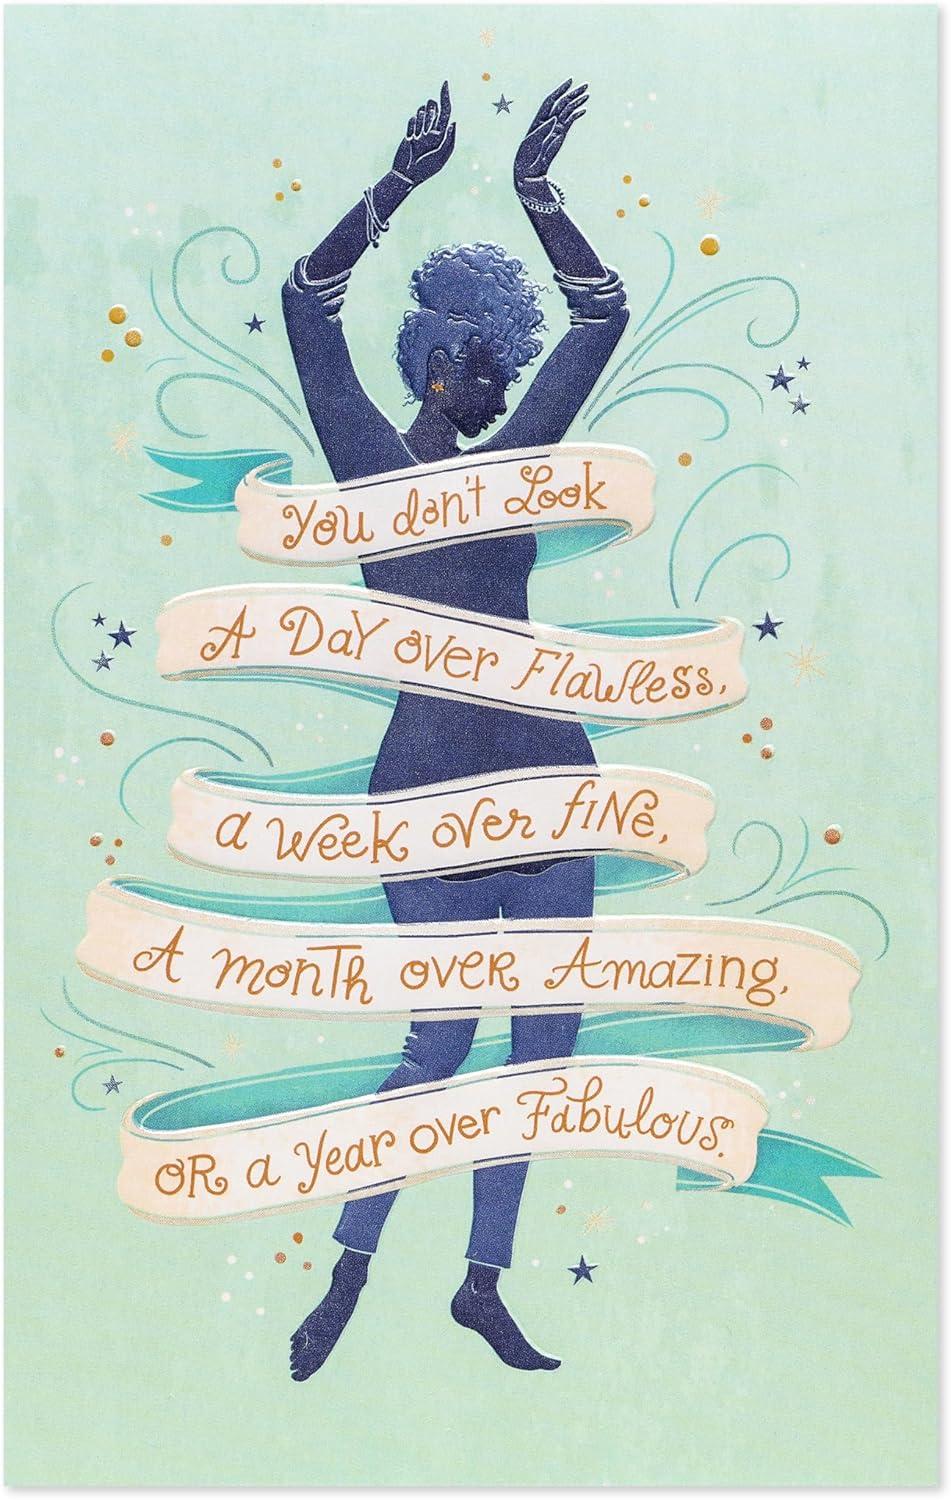 You don't Look
A Day over Flawless,
a week over fine,
A month over Amazing,
or a year over Fabulous.